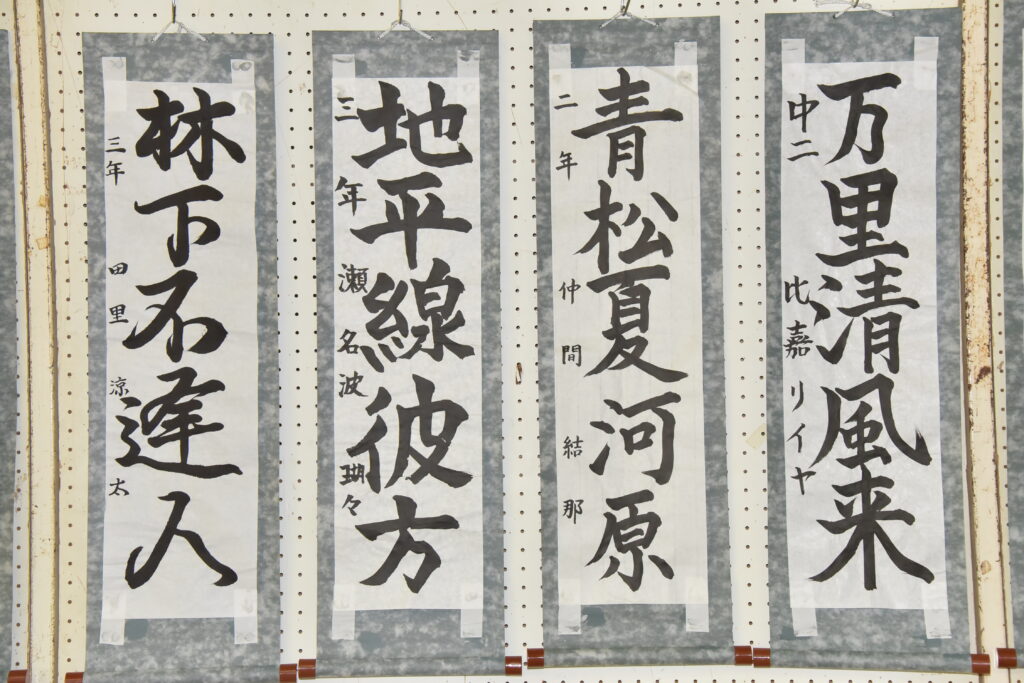 万里清風来
中二 比嘉リイヤ
青松夏河原
二年 仲間結那
地平線彼方
三年 瀬名波瑚々
林下不逢人
三年 田里涼太